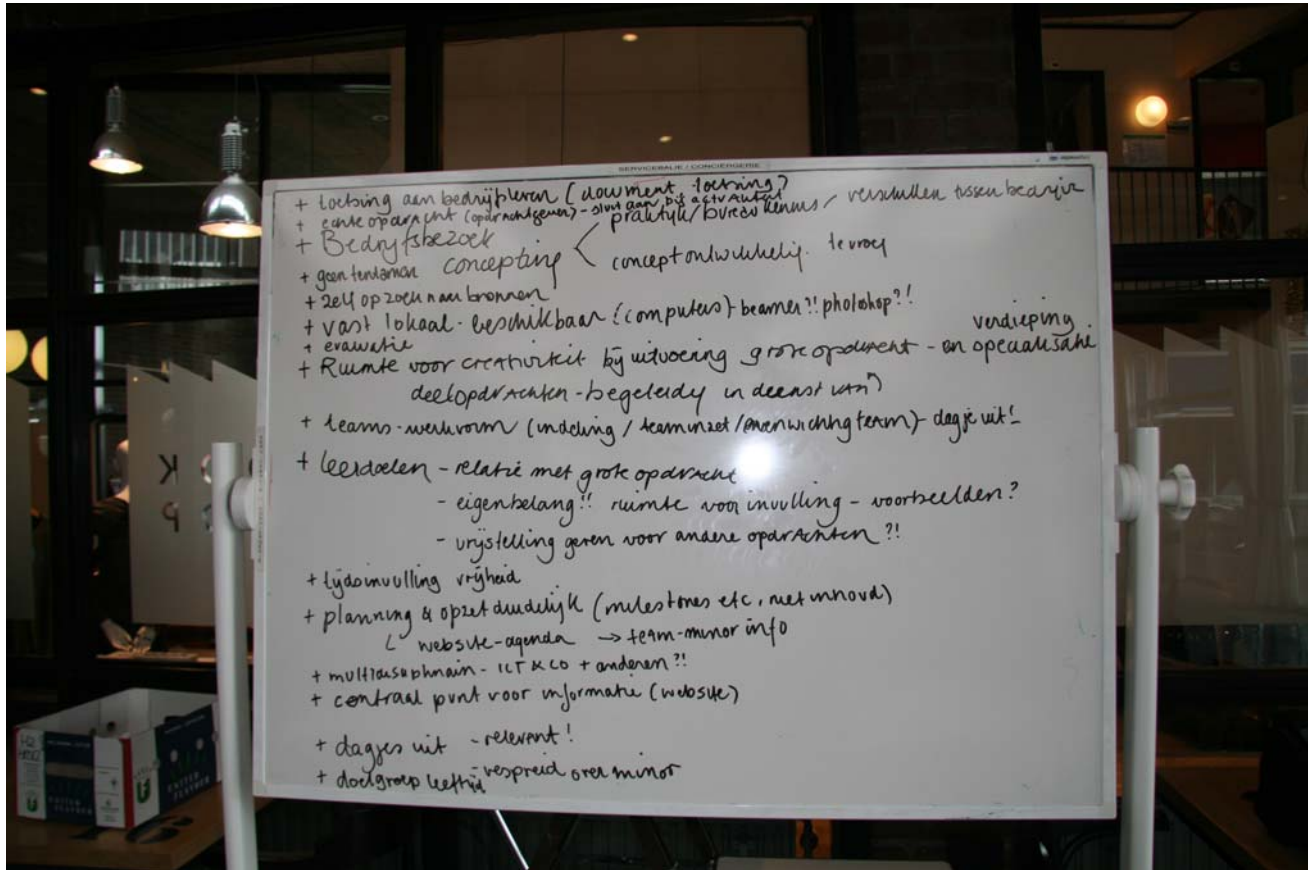 SERVICEBALIE / CONCIERGERIE
+ toetsing aan bedrijfsleven (document toetsing)
+ echte opdracht (opdrachtgever) - sluit aan bij activiteit
praktijk / bureau kennis / verschillen tussen bedrijv
+ Bedrijfsbezoek
+ geen tentamen concepting < conceptontwikkeling. te vroeg
+ zelf op zoek naar bronnen
+ vast lokaal - beschikbaar! (computers) - beamer?! photoshop?!
+ evaluatie
verdieping
+ Ruimte voor creativiteit bij uitvoering grote opdracht - en specialisatie
deelopdrachten - begeleidy in deenst van
+ teams - werkvorm (indeling / teaminzet / team) - dagje uit!
+ leerdoelen - relatie met grote opdracht
- eigenbelang!! ruimte voor invulling - voorbeelden?
- vrijstelling geven voor andere opdrachten?!
+ tijdsinvulling vrijheid
+ planning & opzet duidelijk (milestones etc, met inhoud)
website-agenda → team-minor info
+ multidisciplinair - ICT & CO + anderen?!
+ centraal punt voor informatie (website)
+ dagjes uit - relevant!
- vespreid over minor
+ doelgroep leeftijd